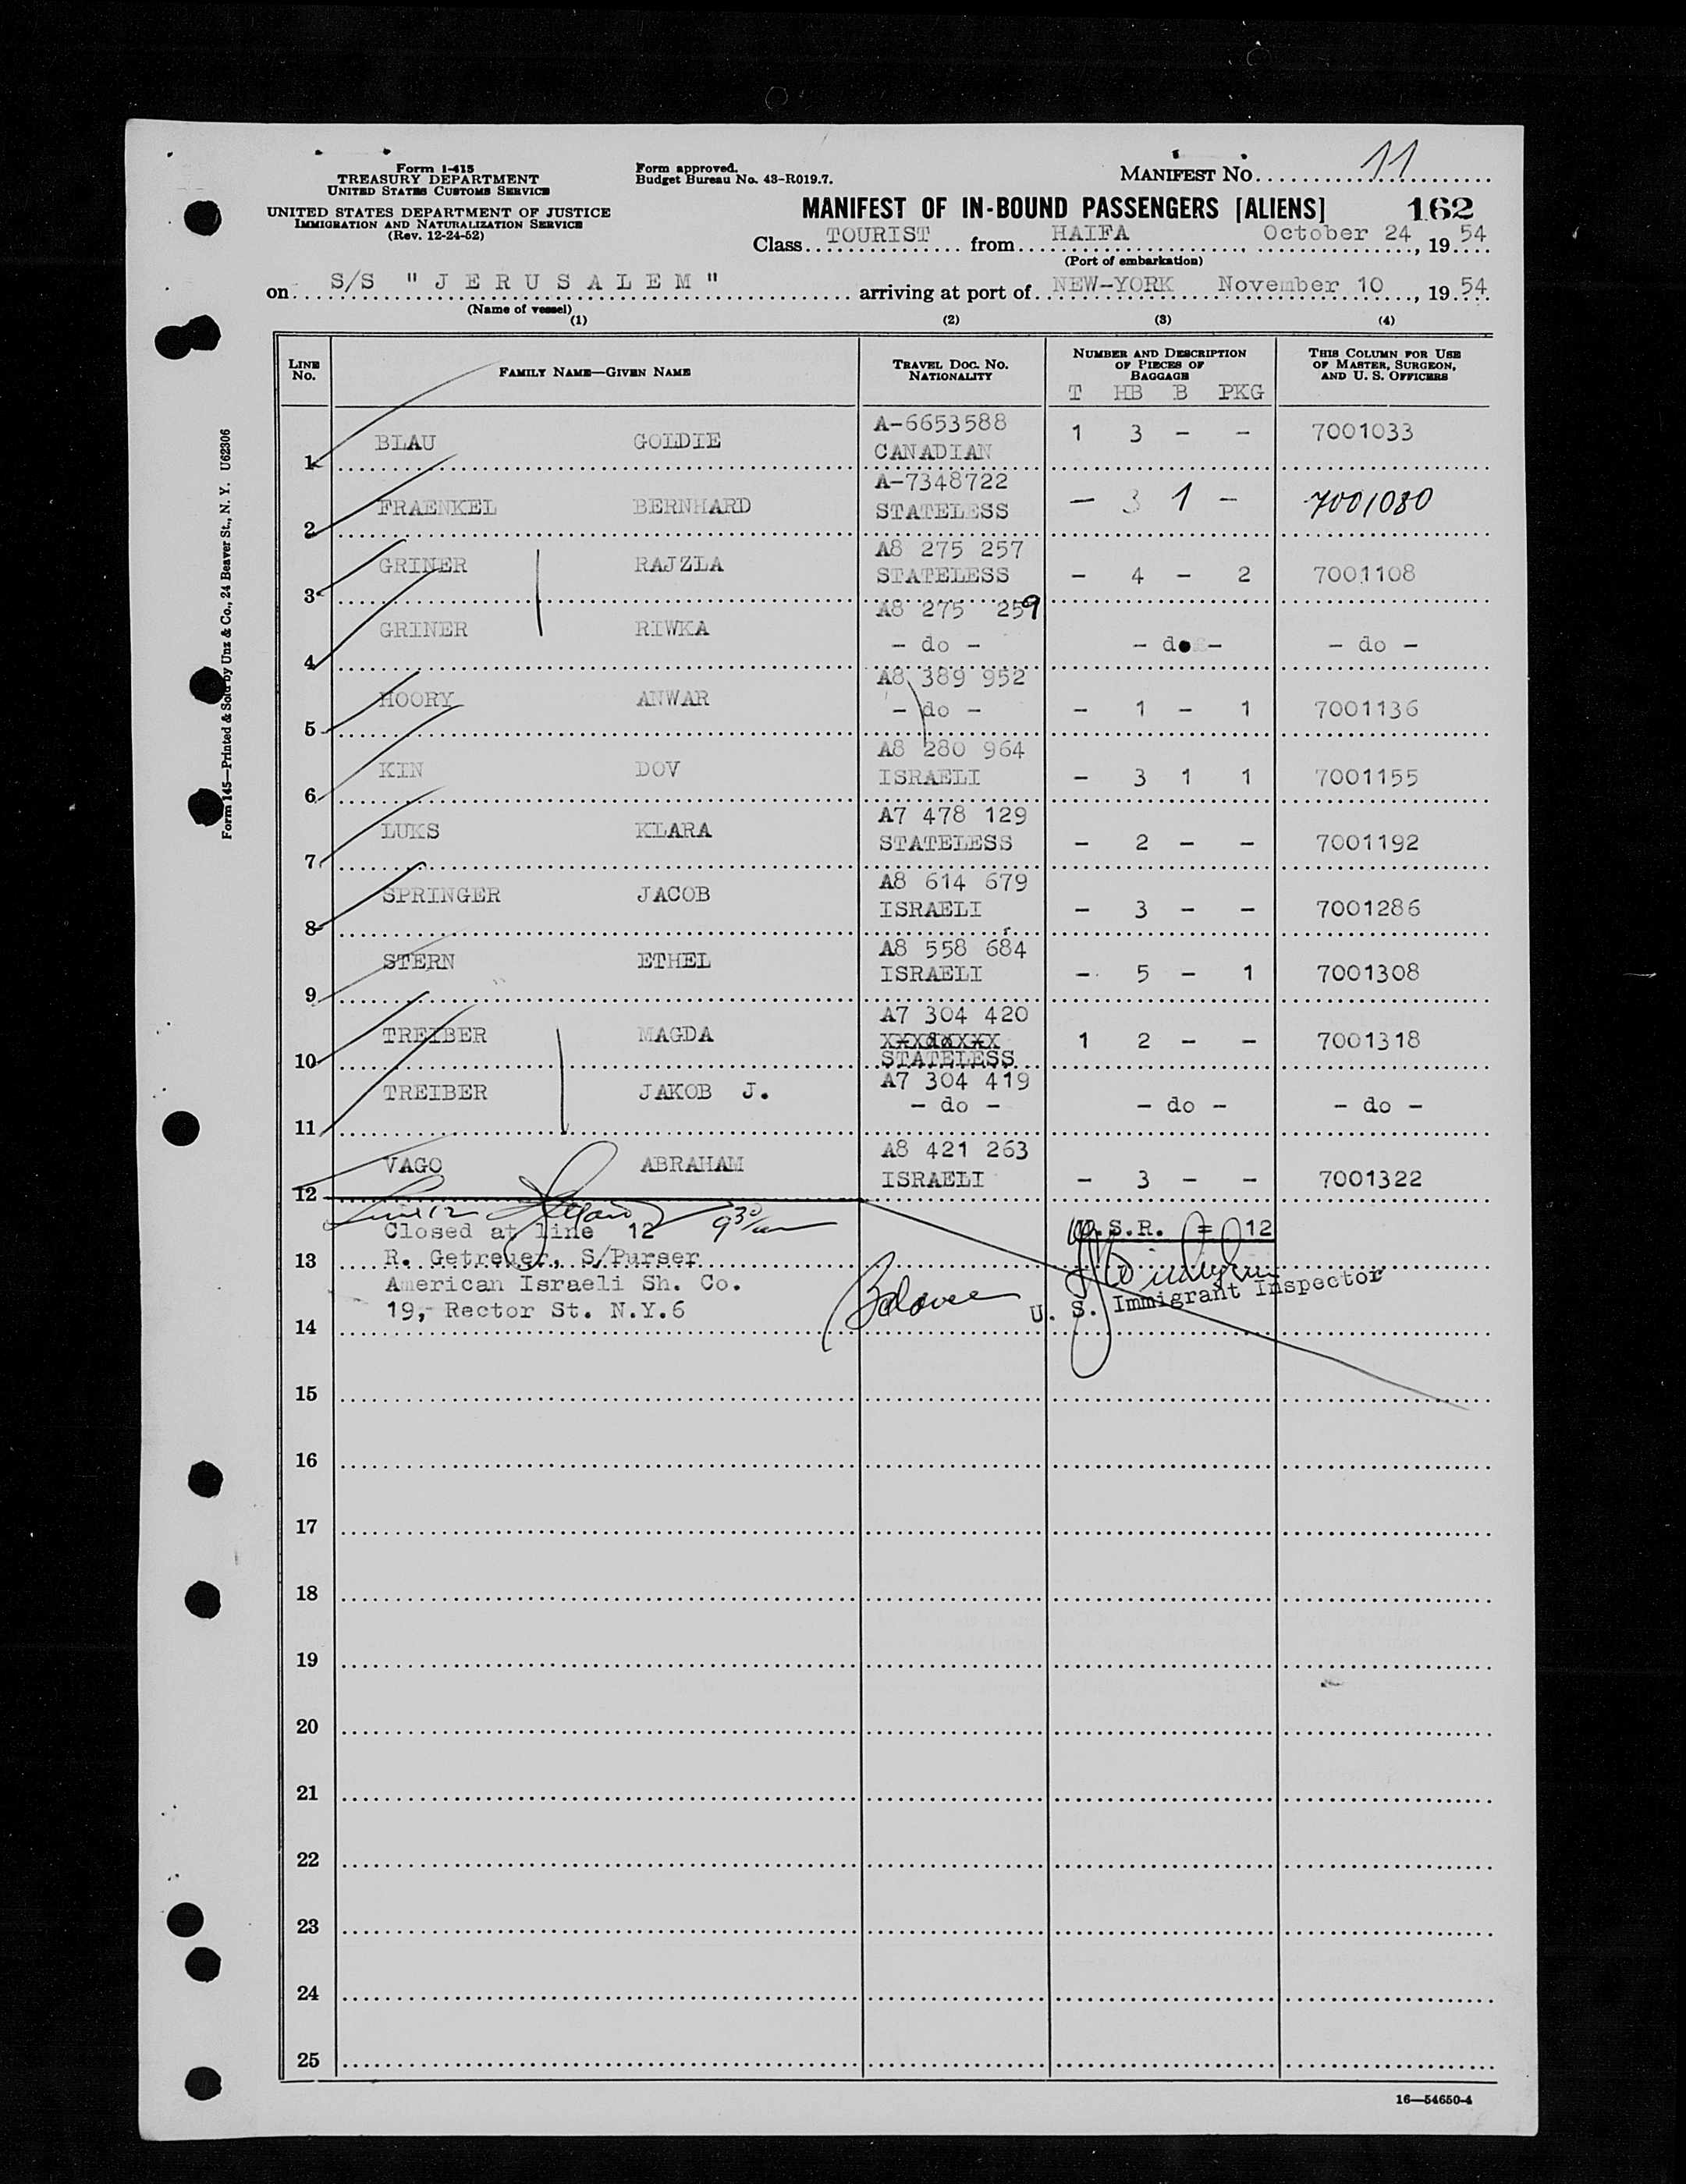 Form I-415
TREASURY DEPARTMENT
UNITED STATES CUSTOMS SERVICE
UNITED STATES DEPARTMENT OF JUSTICE
IMMIGRATION AND NATURALIZATION SERVICE
(Rev. 12-24-52)
Form approved.
Budget Bureau No. 43-R019.7.
MANIFEST NO. 11
MANIFEST OF IN-BOUND PASSENGERS [ALIENS] 162
Class TOURIST from HAIFA, October 24, 19 54
(Port of embarkation)
on S/S "JERUSALEM" arriving at port of NEW-YORK November 10, 19 54
(Name of vessel)
(1) (2) (3) (4)
LINE NO. FAMILY NAME—GIVEN NAME TRAVEL DOC. NO. NATIONALITY NUMBER AND DESCRIPTION OF PIECES OF BAGGAGE THIS COLUMN FOR USE OF MASTER, SURGEON, AND U. S. OFFICERS
T HB B PKG
1 BLAU GOLDIE A-6653588 CANADIAN 1 3 - - 7001033
2 FRAENKEL BERNHARD A-7348722 STATELESS - 3 1 - 7001080
3 GRINER RAJZLA A8 275 257 STATELESS - 4 - 2 7001108
4 GRINER RIWKA A8 275 259 - do - - do - - do -
5 HOORY ANWAR A8 389 952 - do - - 1 - 1 7001136
6 KIN DOV A8 280 964 ISRAELI - 3 1 1 7001155
7 LUKS KLARA A7 478 129 STATELESS - 2 - - 7001192
8 SPRINGER JACOB A8 614 679 ISRAELI - 3 - - 7001286
9 STERN ETHEL A8 558 684 ISRAELI - 5 - 1 7001308
10 TREIBER MAGDA A7 304 420 STATELESS 1 2 - - 7001318
11 TREIBER JAKOB J. A7 304 419 - do - - do - - do -
12 VAGO ABRAHAM A8 421 263 ISRAELI - 3 - - 7001322
Closed at line 12 9 30/am
U.S.R. = 12
13 R. Getreuer, S/Purser
American Israeli Sh. Co.
U. S. Immigrant Inspector
19, Rector St. N.Y.6
14
15
16
17
18
19
20
21
22
23
24
25
16—54650-4
Form 145—Printed & Sold by Unz & Co., 24 Beaver St., N. Y. U62306